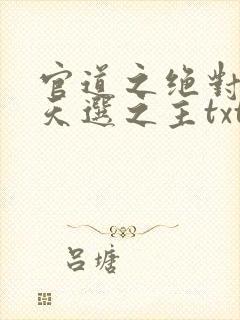 官道之绝對
天選之主txt
吕塘